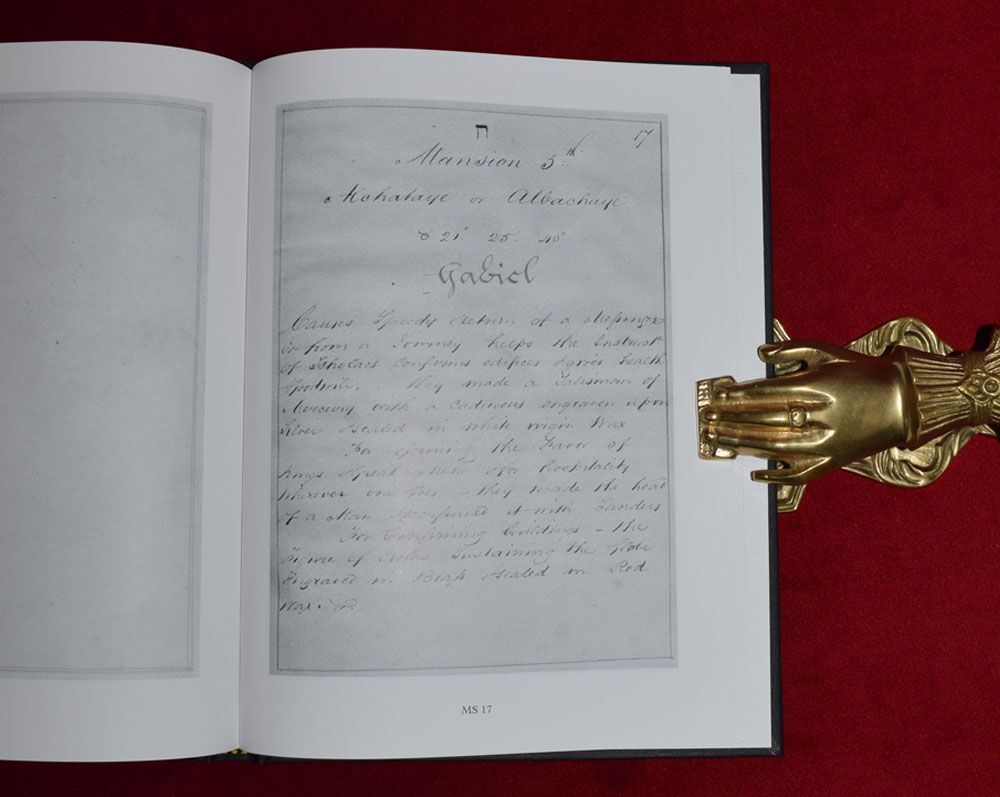 ה 17
Mansion 5th
Alchataye or Albachaye
♉ 21° 25' 40"
Gabiel
Causes Speedy Return of a
or from a Journey keeps the
of Scholars Confirms edifices gives health
Goodwill. They made a Talisman of
Mercury with a Caduceus engraven upon
Silver Sealed in White virgin Wax
For Gaining the Favor of
Kings Great Men & for Hospitality
Wherever one goes. – they made the head
of a Man & perfumed it with Sanders
For Confirming buildings – the
Figure of Atlas Sustaining the Globe
Engraved in Brass Sealed in Red
Wax.
MS 17